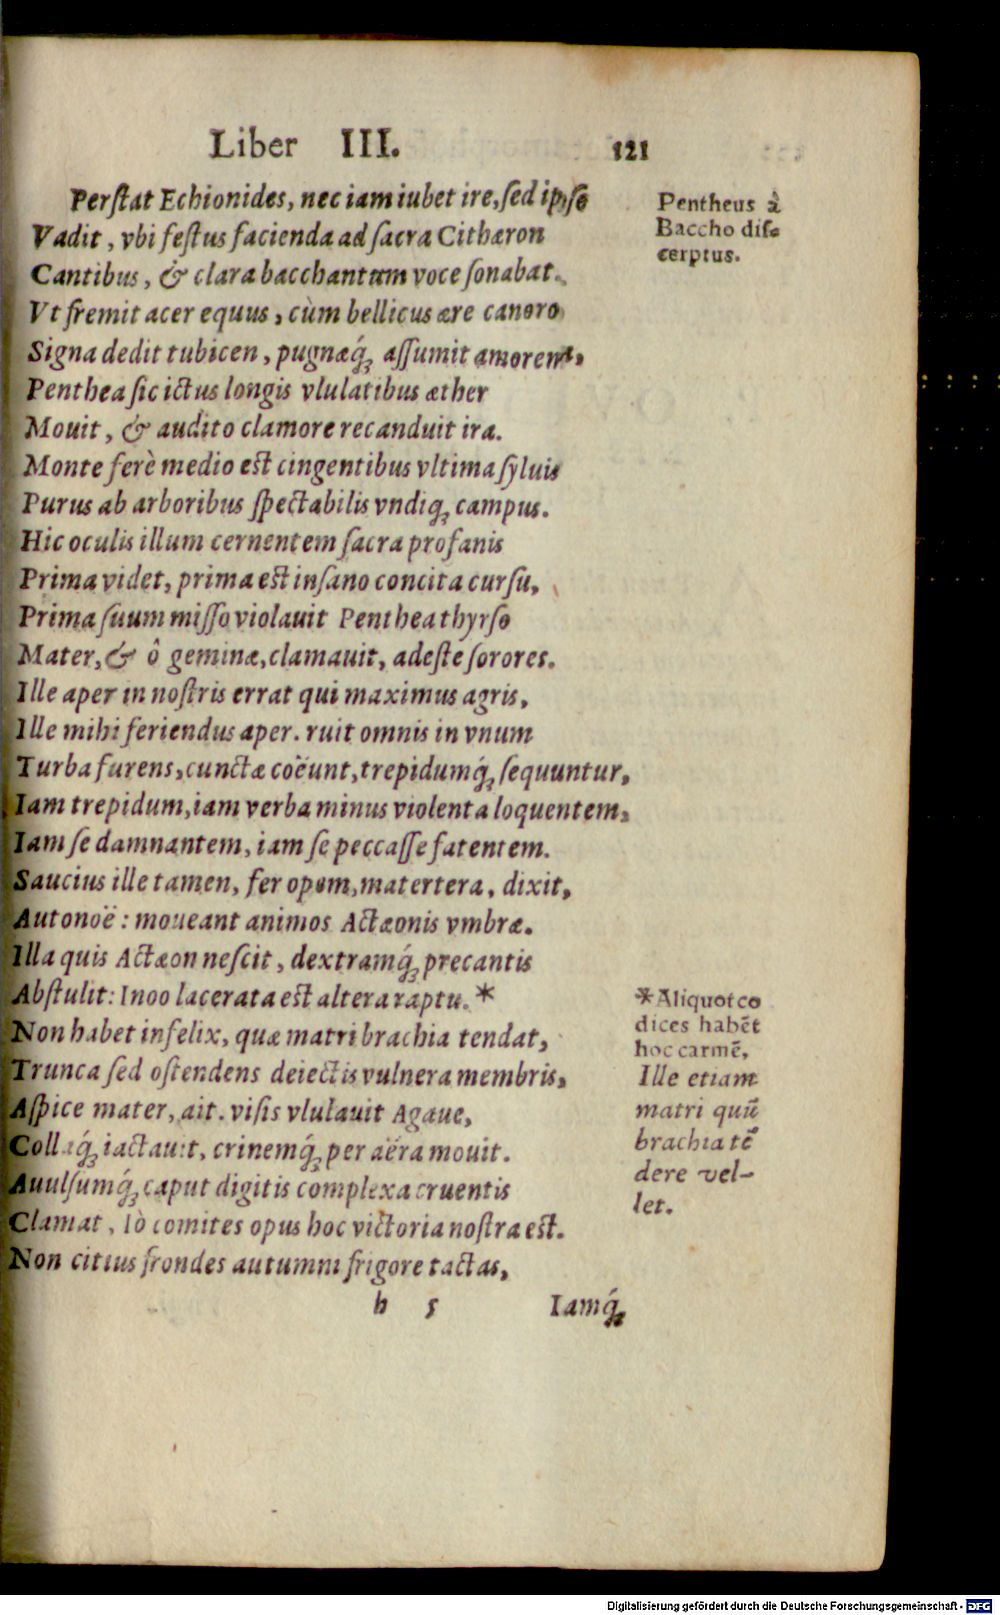 Liber III. 121
Perſtat Echionides, nec iam iubet ire, ſed ipſe
Vadit, vbi feſtus facienda ad ſacra Cithæron
Cantibus, & clara bacchantum voce ſonabat.
Vt fremit acer equus, cùm bellicus ære canoro
Signa dedit tubicen, pugnæq́; aſſumit amorem.
Penthea ſic ictus longis vlulatibus æther
Mouit, & audito clamore recanduit ira.
Monte ferè medio est cingentibus vltima ſyluis
Purus ab arboribus ſpectabilis vndiq; campus.
Hic oculis illum cernentem ſacra profanis
Prima videt, prima est inſano concita curſu,
Prima ſuum miſſo violauit Penthea thyrſo
Mater, & ô geminæ, clamauit, adeſte ſorores.
Ille aper in noſtris errat qui maximus agris,
Ille mihi feriendus aper. ruit omnis in vnum
Turba furens, cunctæ coëunt, trepidumq́; ſequuntur,
Iam trepidum, iam verba minus violenta loquentem,
Iam ſe damnantem, iam ſe peccaſſe fatentem.
Saucius ille tamen, fer opem, matertera, dixit,
Autonoë: moueant animos Actæonis vmbræ.
Illa quis Actæon neſcit, dextramq́; precantis
Abſtulit: Inoo lacerata est altera raptu. *
Non habet infelix, quæ matri brachia tendat,
Trunca ſed oſtendens deiectis vulnera membris,
Aſpice mater, ait. viſis vlulauit Agaue,
Collaq́; iactauit, crinemq́; per aëra mouit.
Auulſumq́; caput digitis complexa cruentis
Clamat, Iò comites opus hoc victoria noſtra est.
Non citius frondes autumni frigore tactas,
h 5 Iamq́;
Pentheus à
Baccho diſ-
cerptus.
*Aliquot co
dices habẽt
hoc carmẽ,
Ille etiam
matri quũ
brachia tẽ
dere vel-
let.
Digitalisierung gefördert durch die Deutsche Forschungsgemeinschaft - DFG